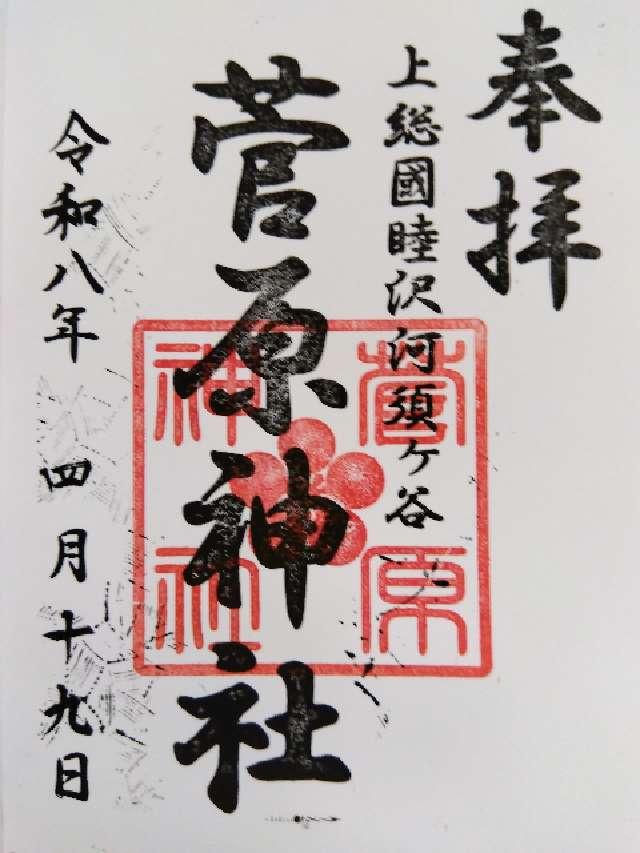 奉拝
上総國睦沢河須ケ谷
菅原神社
菅原
神社
令和八年 四月十九日